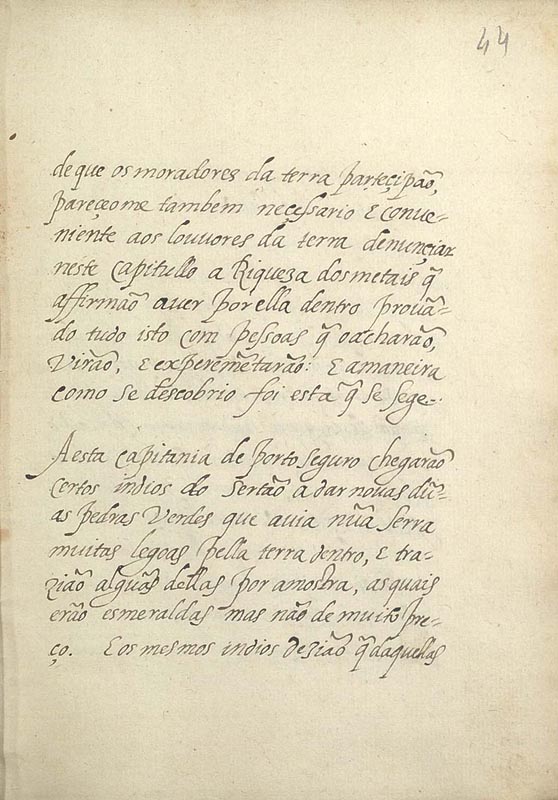 44
de que os moradores da terra parteçipão,
pareçeome tambem neçessario E conue-
niente aos louuores da terra denunçiar
neste capitullo a Riqueza dos metais q̃
affirmão auer por ella dentro prouã-
do tudo isto com pessoas q̃ o acharão,
virão, E experemẽtarão: E a maneira
como se descobrio foi esta q̃ se sege-.
A esta capitania de porto seguro chegarão
certos indios do Sertão a dar nouas dũ-
as pedras Verdes que auia nũa Serra
muitas legoas pella terra dentro, E tra-
zião algũas dellas por amostra, as quais
erão esmeraldas mas não de muito pre-
ço. E os mesmos indios dezião q̃ daquellas